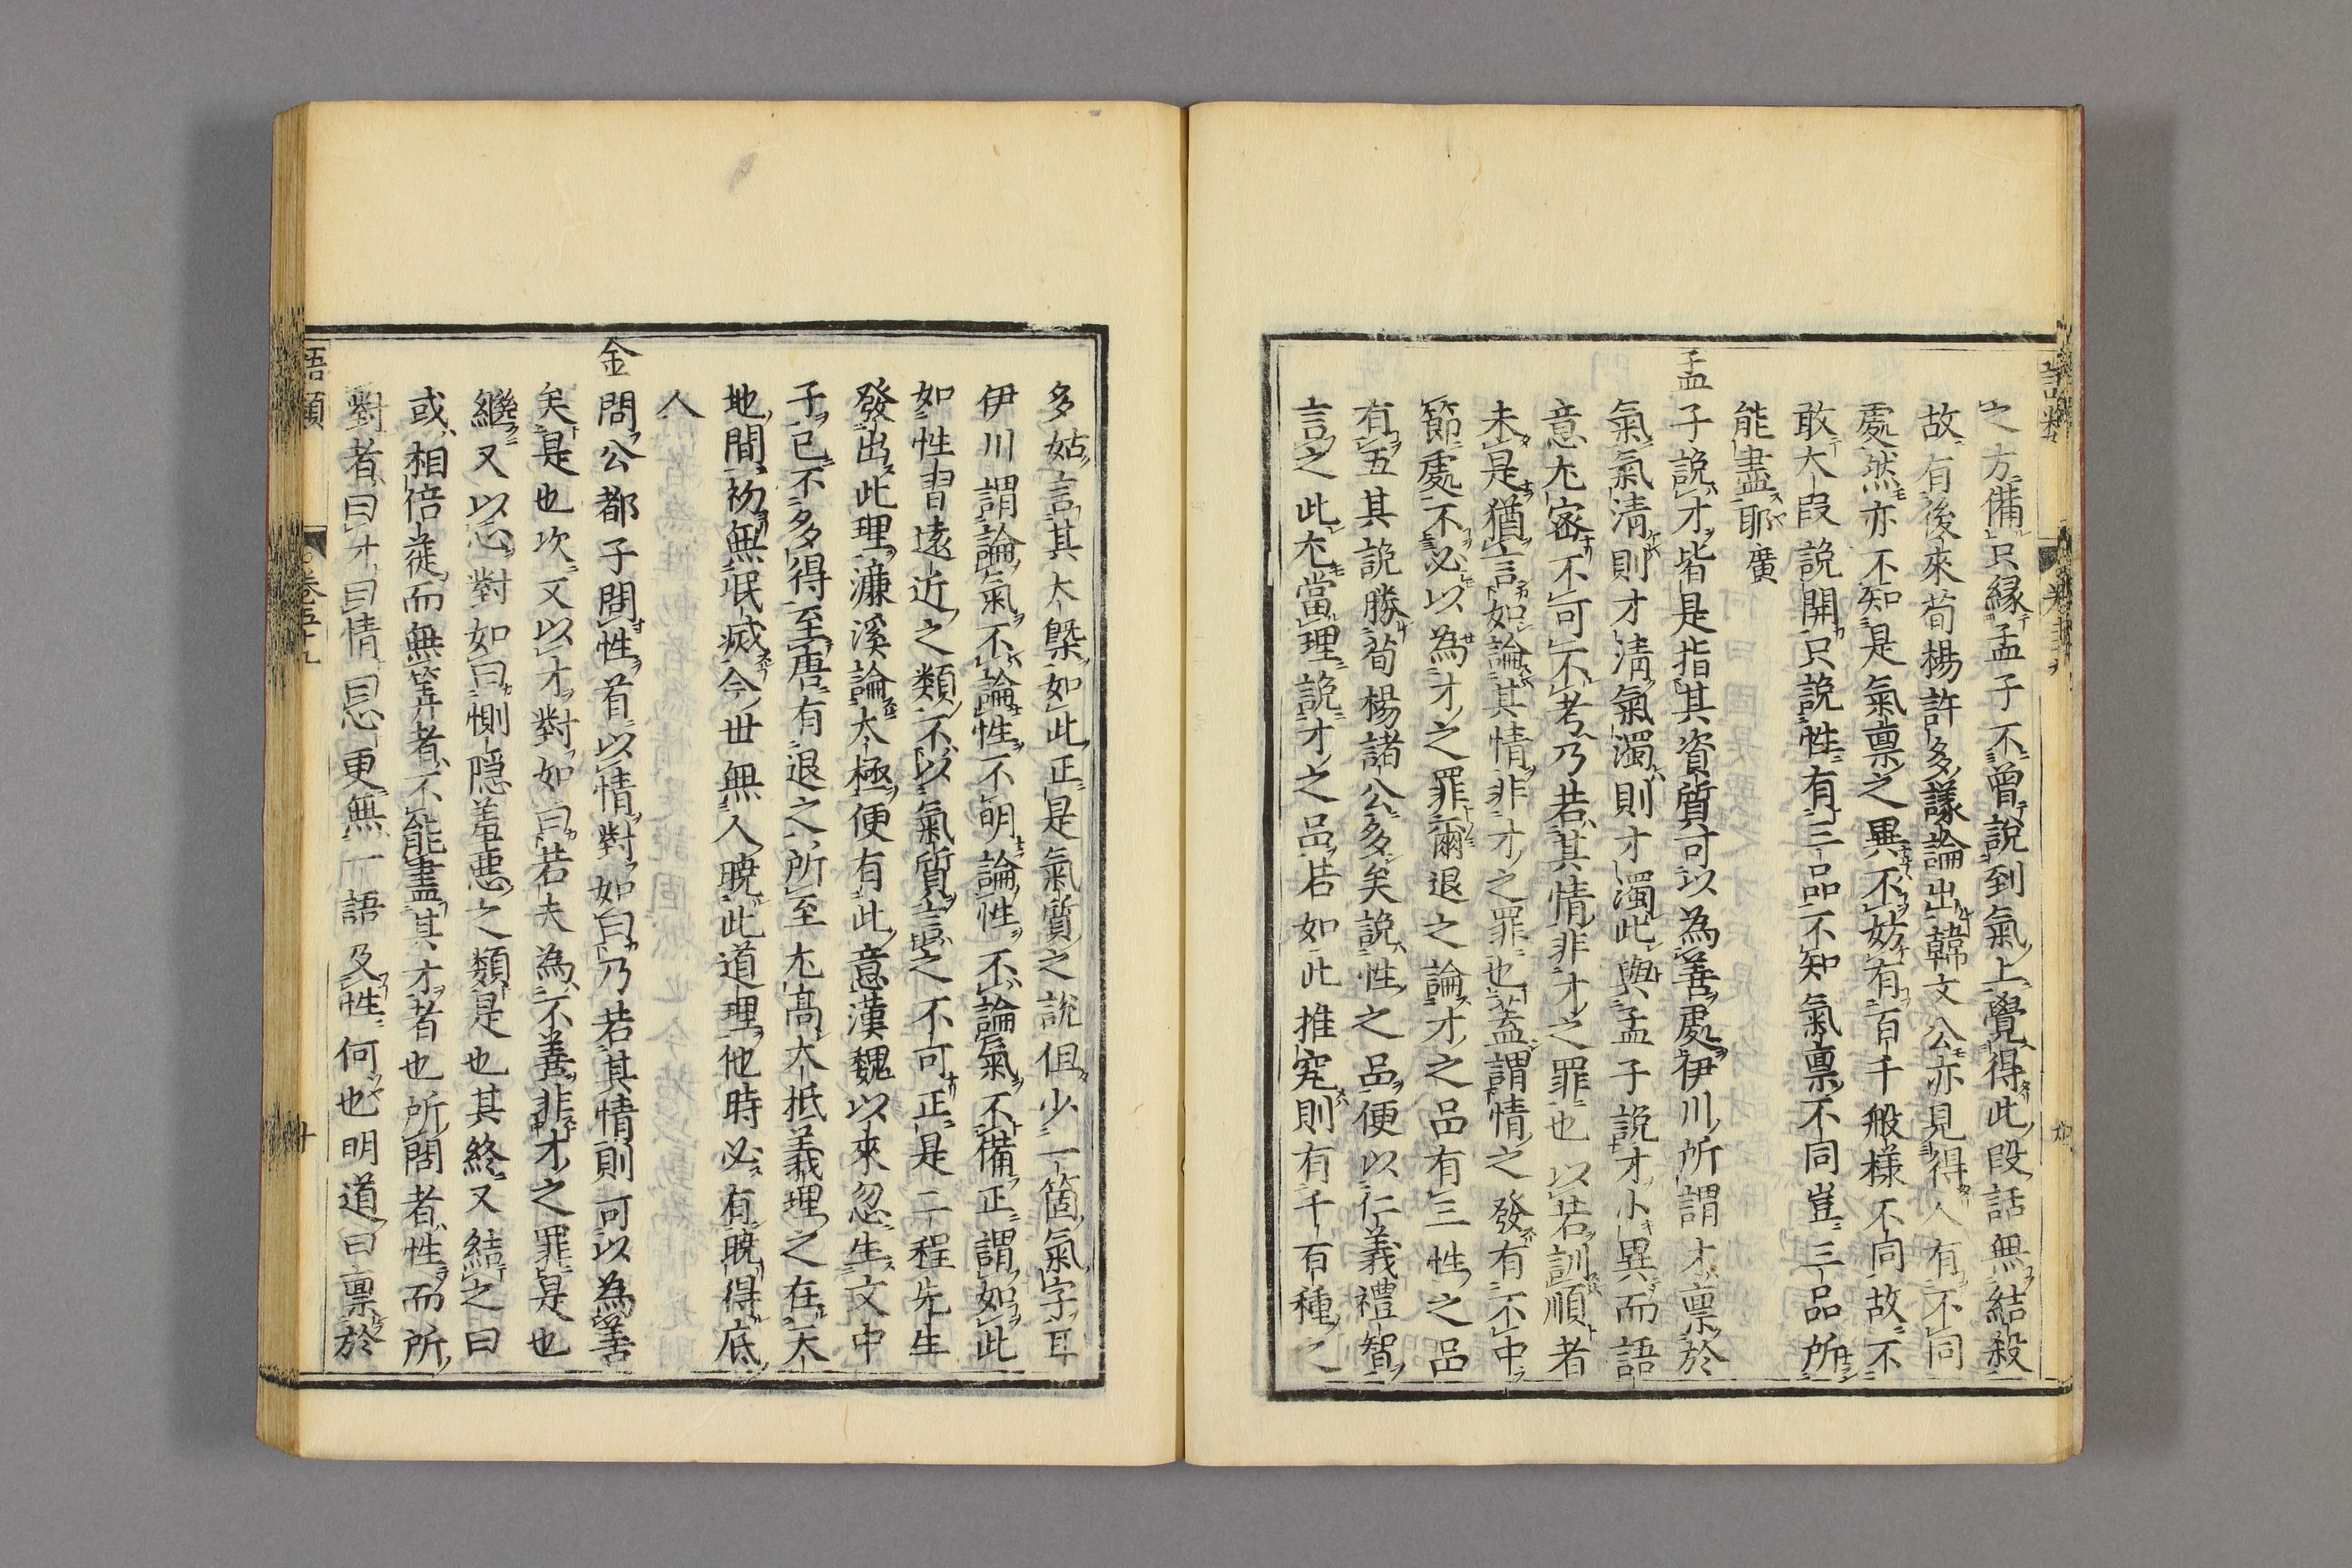 之方備只縁孟子不曽說到氣上覺得此段話無結殺
故有後來荀楊許多議論出韓文公亦見得人有不同
處然亦不知是氣禀之異不妨有百千般樣不同故不
敢大段說開只說性有三品不知氣禀不同豈三品所
能盡耶廣
孟子說才皆是指其資質可以為善處伊川所謂才禀於
氣氣清則才清氣濁則才濁此與孟子說才小異而語
意尤密不可不考乃若其情非才之罪也以若訓順者
未是猶言如論其情非才之罪也盖謂情之發有不中
節處不必以為才之罪爾退之論才之品有三性之品
有五其說勝荀楊諸公多矣說性之品便以仁義禮智
言之此尤當理說才之品若如此推究則有千百種之
多姑言其大槩如此正是氣質之說但少一箇氣字耳
伊川謂論氣不論性不明論性不論氣不備正謂如此
如性習遠近之類不以氣質言之不可正是二程先生
發出此理濂溪論太極便有此意漢魏以來忽生文中
子已不多得至唐有退之所至尤高大抵義理之在天
地間初無泯滅今世無人曉此道理他時必有曉得底
人
金問公都子問性首以情對如曰乃若其情則可以為善
矣是也次又以才對如曰若夫為不善非才之罪是也
繼又以心對如曰惻隠羞惡之類是也其終又結之曰
或相倍蓰而無筭者不能盡其才者也所問者性而所
對者曰才曰情曰心更無一語及性何也明道曰禀於
語類
卷五十九